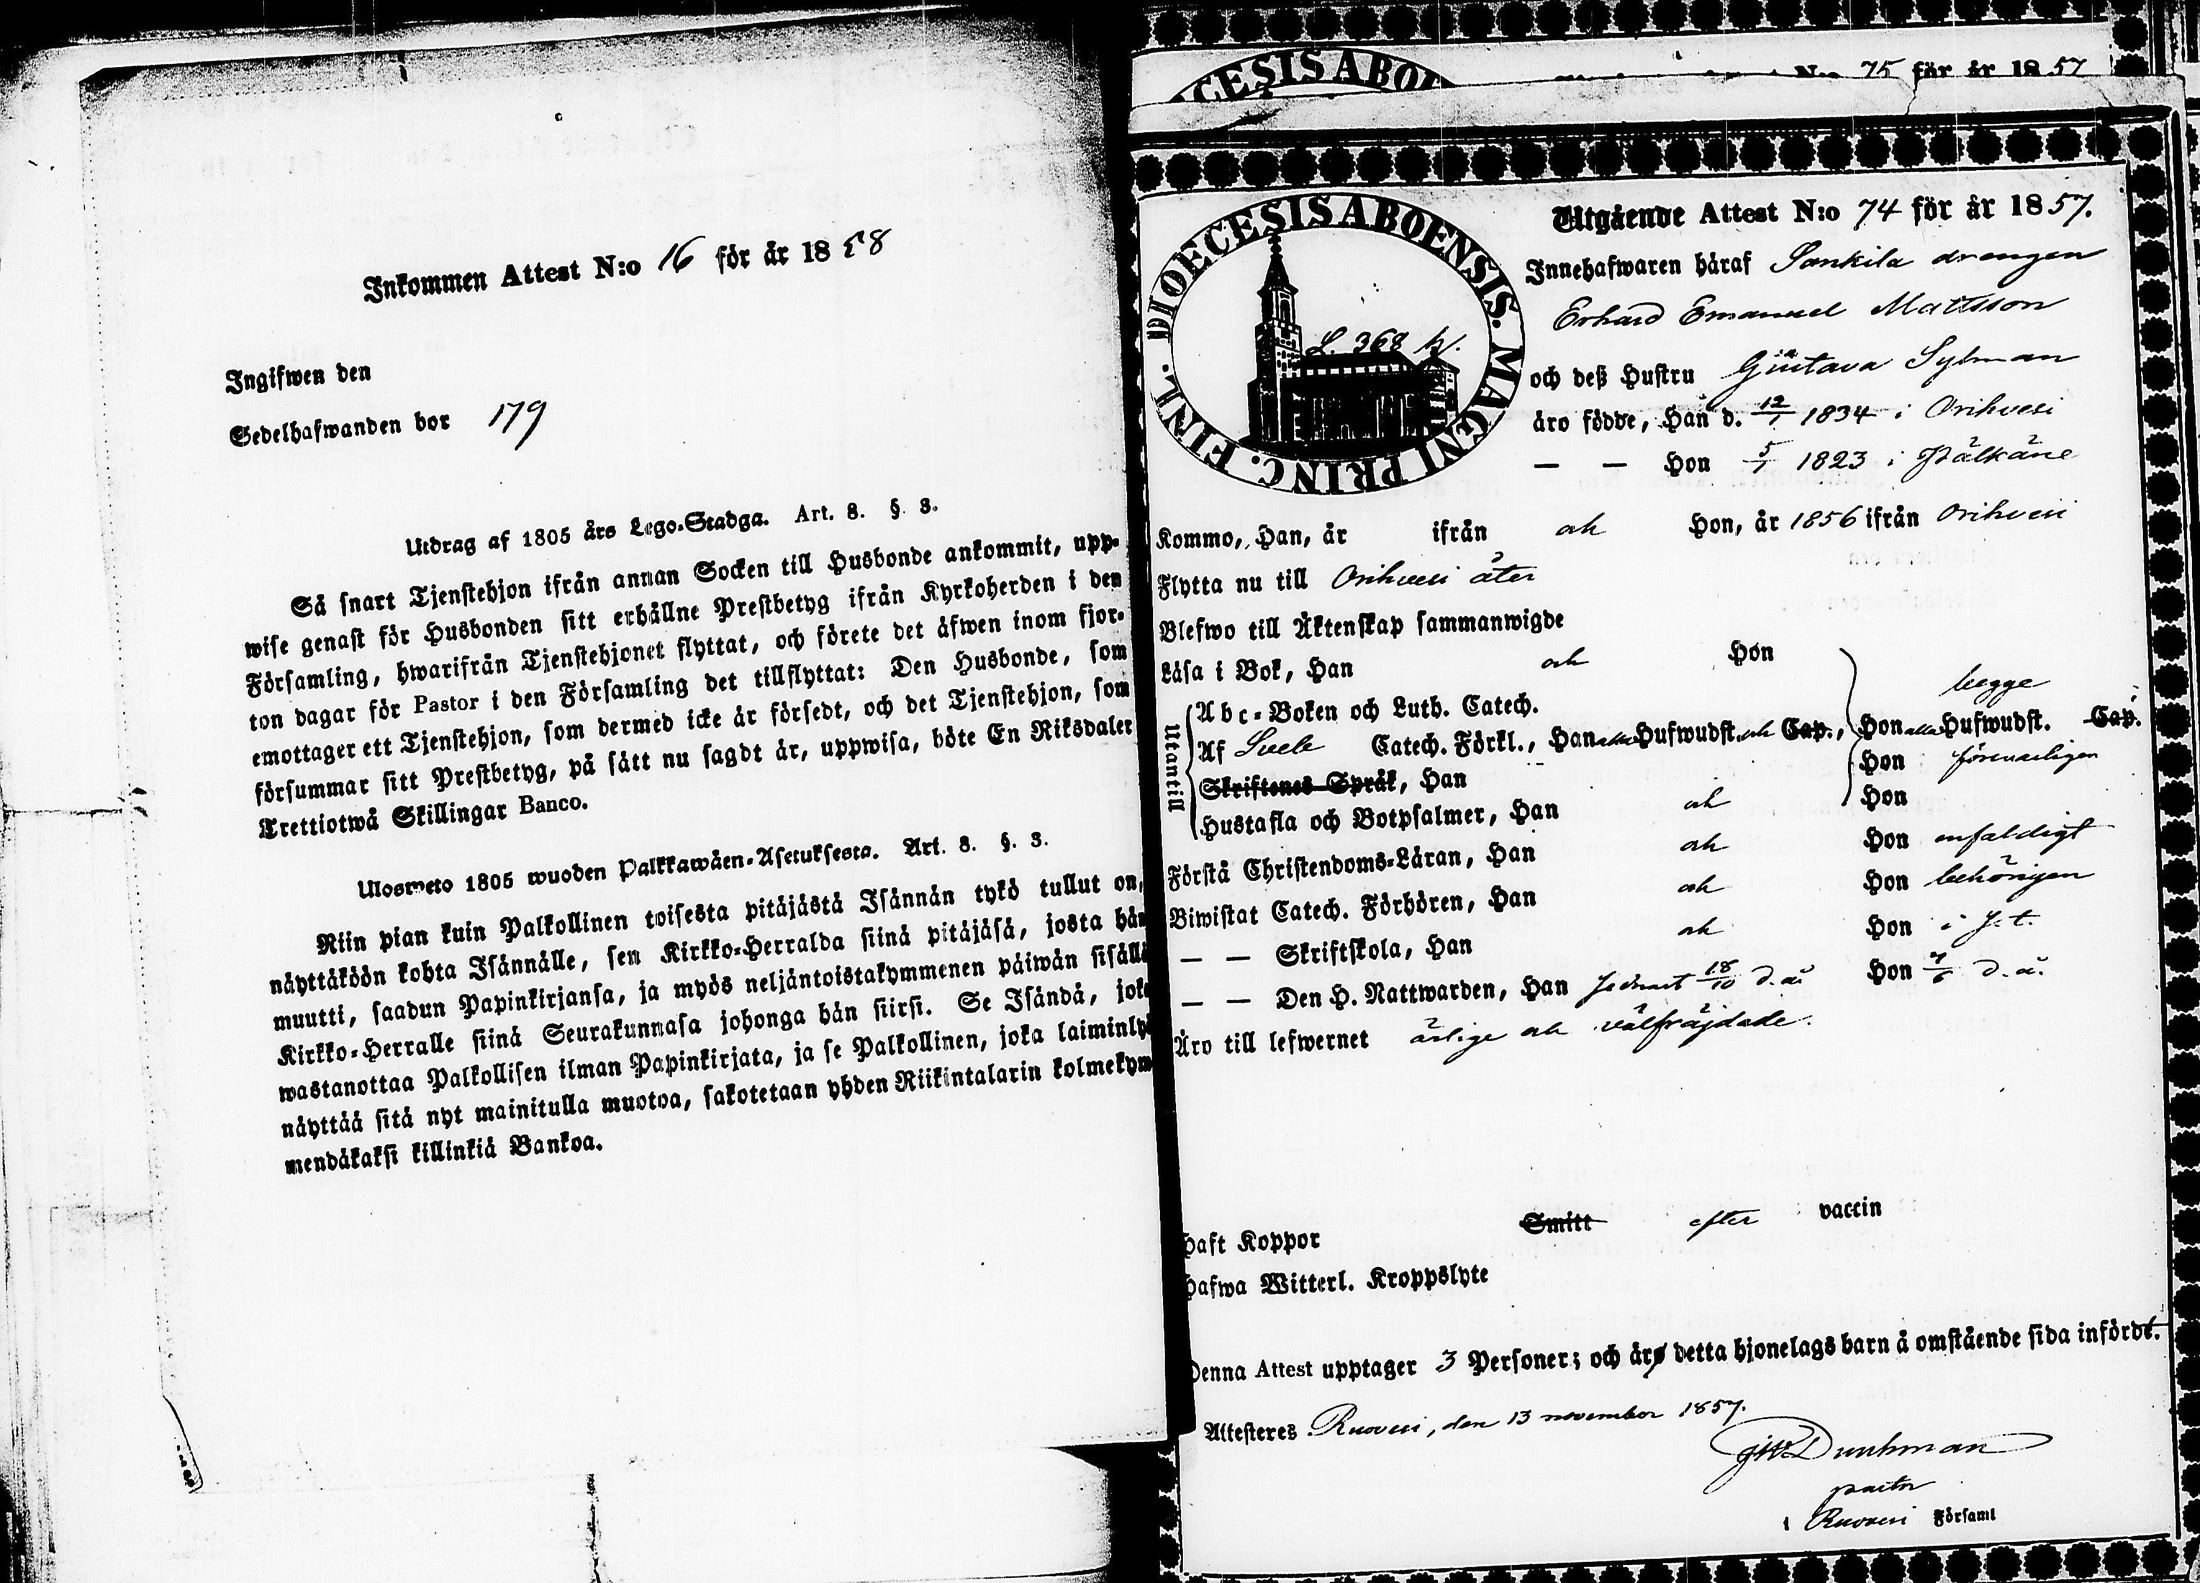 Inkommen Attest N:o 16 för år 1858
Ingifwen den
Sedelhafwanden bor 179
Utdrag af 1805 års Lego-Stadga. Art. 8. §. 3.
Så snart Tjenstehjon ifrån annan Socken till Husbonde ankommit, upp-
wise genast för Husbonden sitt erhållne Prestbetyg ifrån Kyrkoherden i den
Församling, hwarifrån Tjenstehjonet flyttat, och förete det äfwen inom fjor-
ton dagar för Pastor i den Församling det tillflyttat: Den Husbonde, som
emottager ett Tjenstehjon, som dermed icke är försedt, och det Tjenstehjon, som
försummar sitt Prestbetyg, på sätt nu sagdt är, uppwisa, böte En Riksdaler
Trettiotwå Skillingar Banco.
Ulosweto 1805 wuoden Palkkawäen-Asetuksesta. Art. 8. §. 3.
Niin pian kuin Palkollinen toisesta pitäjästä Isännän tykö tullut on,
näyttäköön kohta Isännälle, sen Kirkko-Herralda siinä pitäjäsä, josta hän
muutti, saadun Papinkirjansa, ja myös neljäntoistakymmenen päiwän sisällä
Kirkko-Herralle siinä Seurakunnasa johonga hän siirsi. Se Isändä, joka
wastanottaa Palkollisen ilman Papinkirjata, ja se Palkollinen, joka laiminlyö
näyttää sitä nyt mainitulla muotoa, sakotetaan yhden Riikintalarin kolmekym
mendäkaksi killinkiä Bankoa.
CESIS ABOE
N:o 75 för år 1857
DIOECESIS ABOENSIS. MAGNI PRINC. FINL.
L. 368
Utgående Attest N:o 74 för år 1857.
Innehafwaren häraf Sankila drengen
Erhard Emanuel Mattsson
och deß Hustru Gustava Sylman
äro födde, Han d. 12/1 1834 i Orihvesi
— — Hon 5/1 1823 i Pälkäne
Kommo, Han, år ifrån och Hon, år 1856 ifrån Orihvesi
Flytta nu till Orihvesi åter
Blefwo till Äktenskap sammanwigde
Läsa i Bok, Han och Hon
Utantill
Abc-Boken och Luth. Catech. begge
Af Sveb Catech. Förkl., Han alla Hufwudst. och Cap., Hon alla Hufwudst. Cap.
Skriftenes Språk, Han Hon försvarligen
Hustafla och Botpsalmer, Han och Hon
Förstå Christendoms-Läran, Han och Hon enfaldigt
Biwistat Catech. Förhören, Han och Hon behörigen
— — Skriftskola, Han och Hon i J. t.
— — Den H. Nattwarden, Han sednast 18/10 d. å. Hon 7/6 d. å.
Äro till lefwernet ärlige och välfräjdade.
Haft Koppor Smitt efter vaccin
Hafwa Witterl. Kroppslyte
Denna Attest upptager 3 Personer; och äro detta hjonelags barn å omstående sida införde.
Attesteres Ruovesi, den 13 november 1857.
pastor
i Ruovesi Församl